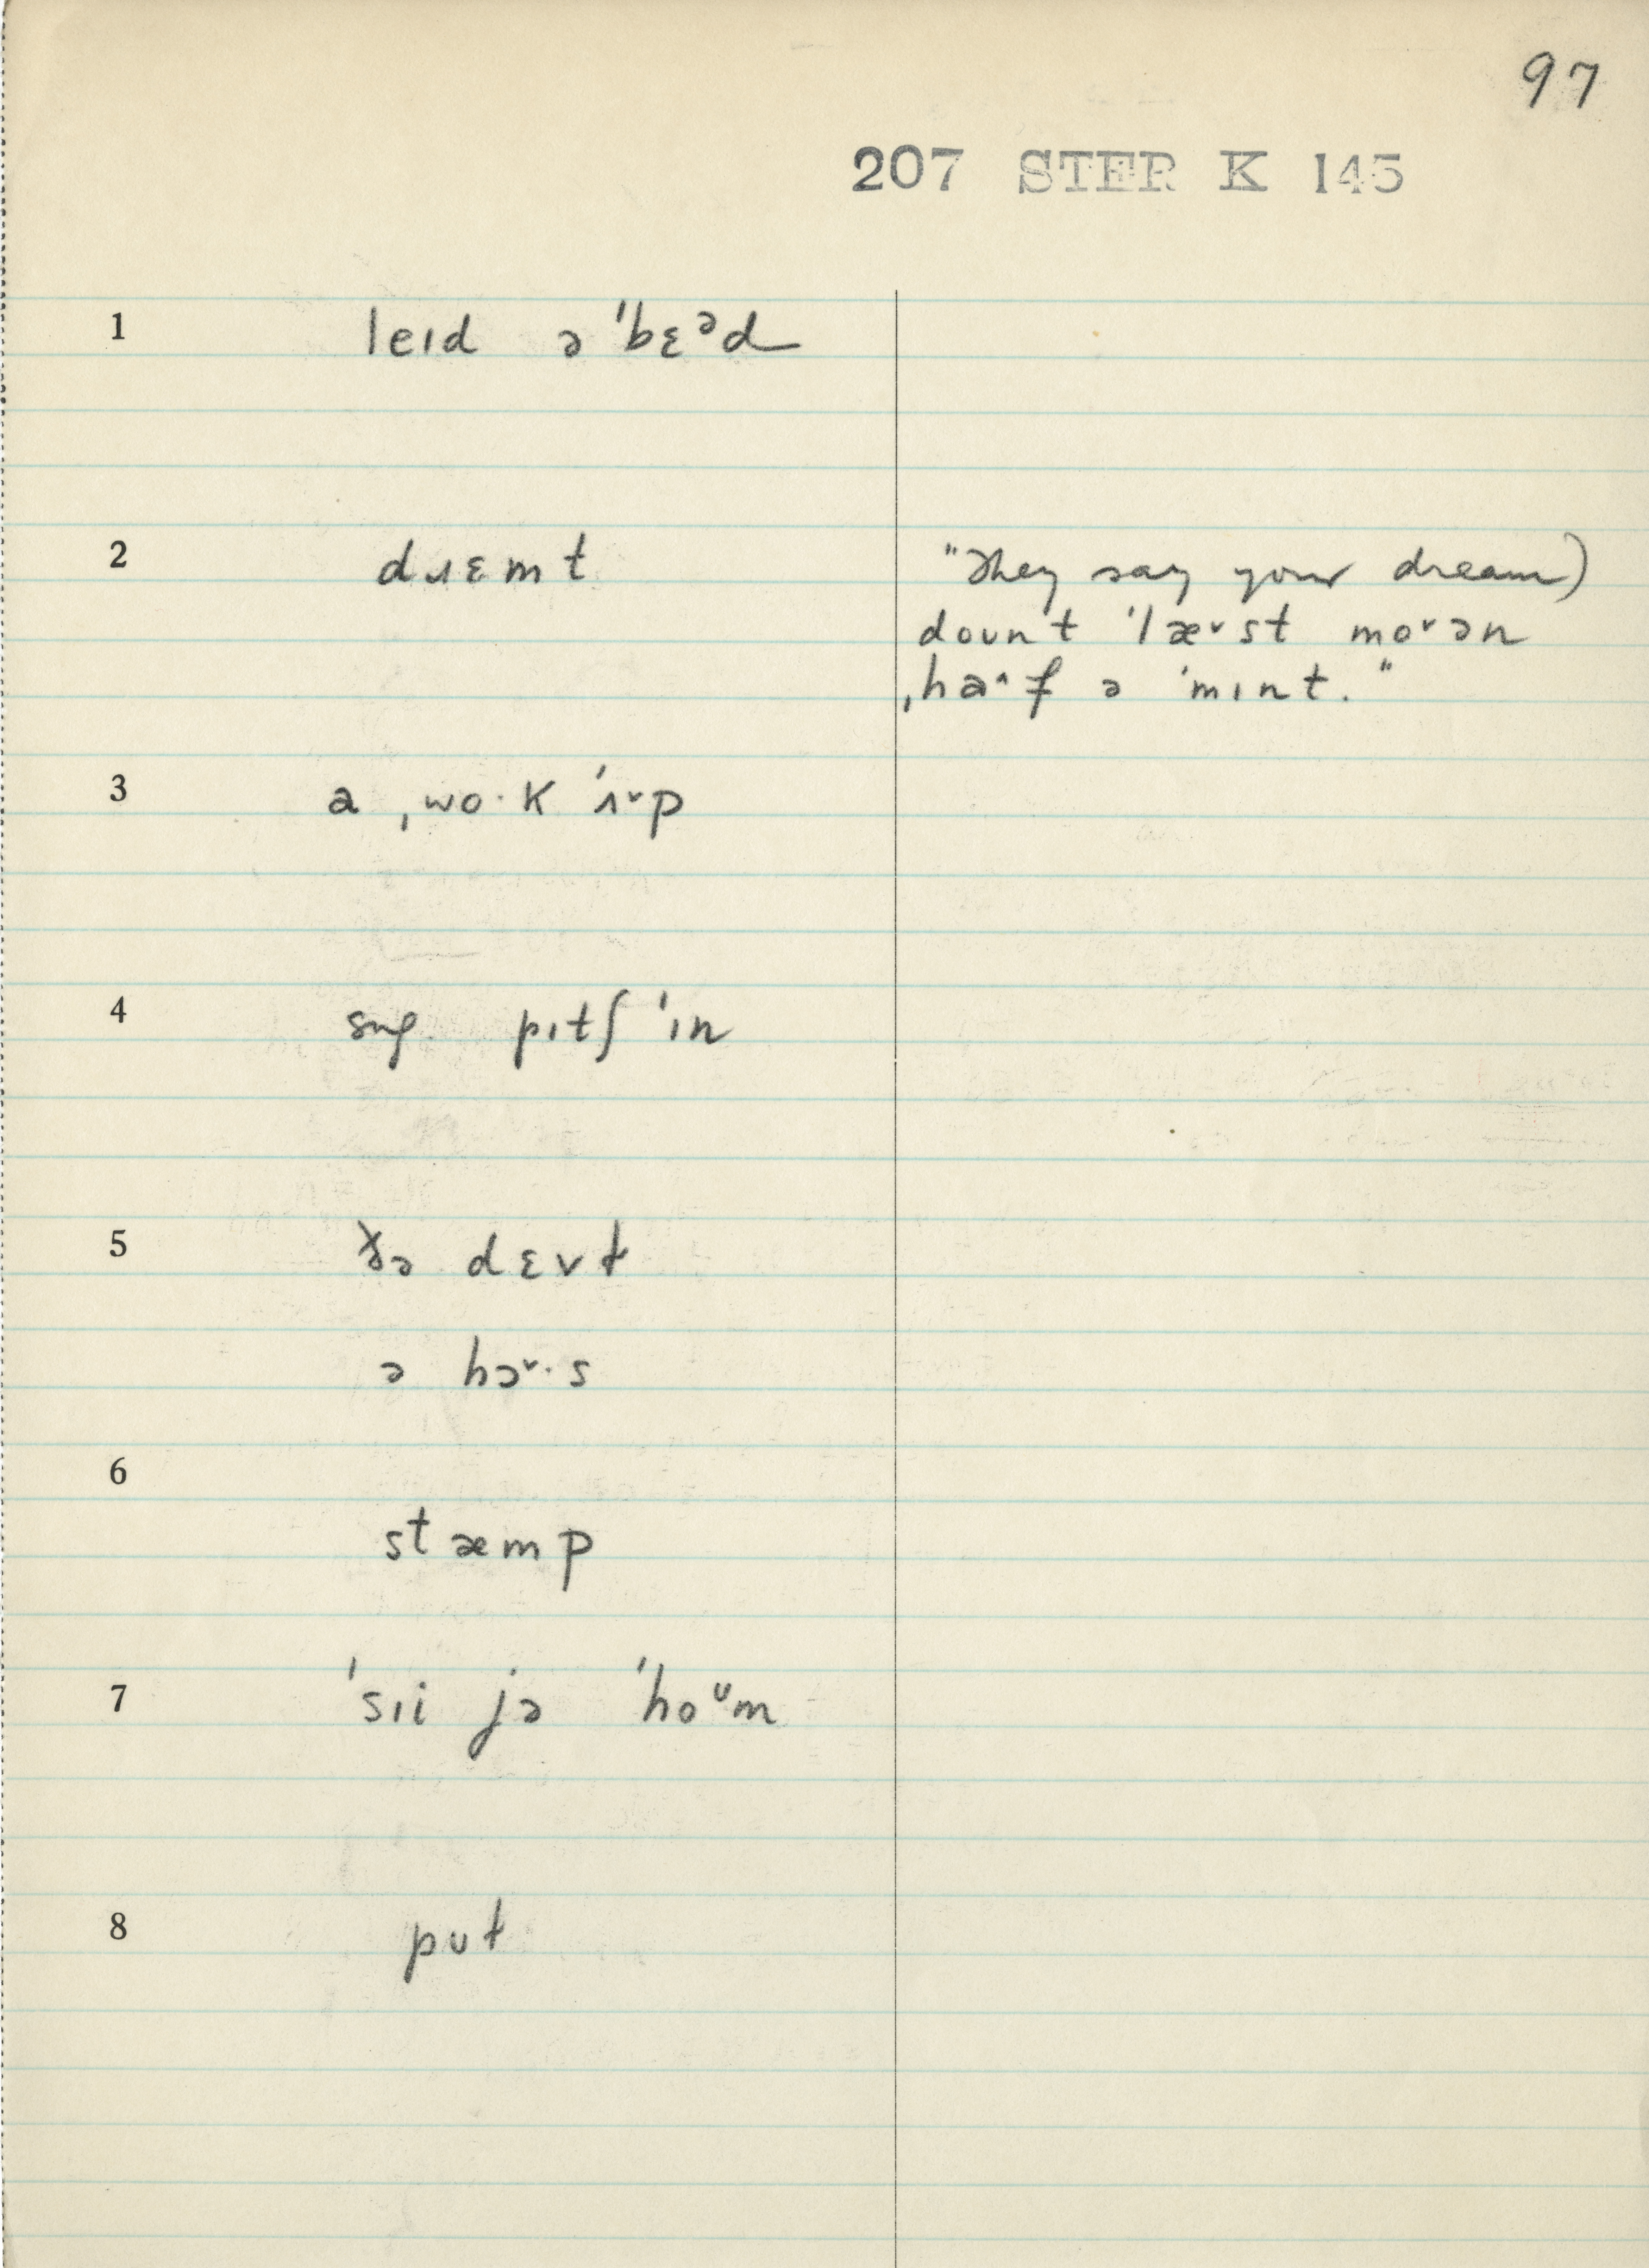 97
207 STER K 145
1 leɪd ə ˈbɛᵊd
2 dɹɛmt "They say your dream)
doʊnt ˈlæ˅st mo˅ən
ˌha˄f ə ˈmɪnt."
3 a ˌwo·k ˈʌ˅p
4 sug. pɪtʃ ˈɪn
5 ðə dɛvt
ə hɔ˅·s
6
stæmp
7 ˈsɪi jə ˈhoᶷm
8 pʊt